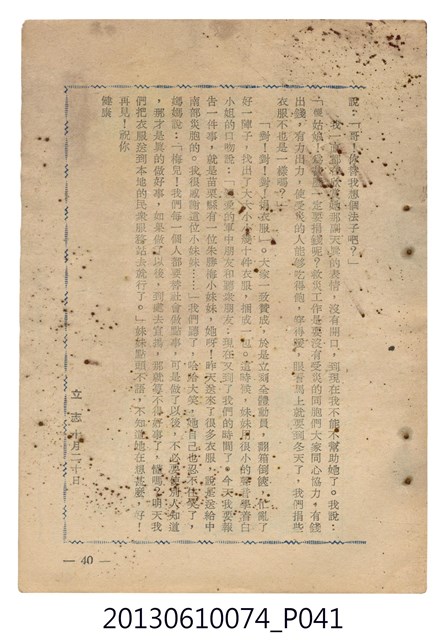 說：「哥！你替我想個法子吧？」
我一直都在欣賞她那副天眞的表情，沒有開口，到現在我不能不幫助她了。我說：
「傻姑娘！爲什麼一定要捐錢呢？救災工作是要沒有受災的同胞們大家同心協力，有錢
出錢，有力出力，使受災的人能够吃得飽，穿得暖，眼看馬上就要到冬天了，我們捐些
衣服不也是一樣嗎？」
「對！對！對！捐衣服」。大家一致贊成，於是立刻全體動員，翻箱倒篋，忙亂了
好一陣子，找出了大大小小幾十件衣服，捆成一包。這時候，妹妹用很小的聲音學着白
小姐的口吻說：「親愛的軍中朋友和聽衆朋友：現在又到了我們的時間了。今天我要報
告一件事，就是苗栗縣有一位朱海小妹妹，她呀！昨天送來了很多衣服，說要送給中
南部災胞的。我很感謝這位小妹妹……」我們聽了，哈哈大笑，她自己也忍不住笑了，
媽媽說：「梅兒！我們每一個人都要替社會做點事，可是做了以後，不必要使別人知道
，那才是眞的做好事，如果做了以後，到處去宣揚，那就算不得好事了，懂嗎？明天我
們把衣服送到本地的民衆服務站去就行了。」妹妹點頭不語，不知道她在想甚麼，好！
再見！祝你
健康
立志十月二十日
— 40 —
20130610074_P041